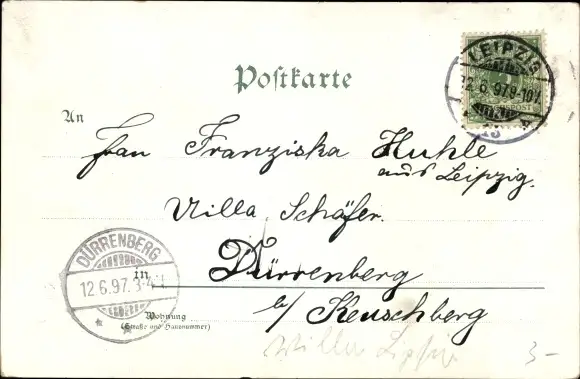 LEIPZIG
12.6.97.9-10V
Postkarte
An
Frau Franziska Huhle
aus Leipzig.
Villa Schäfer.
DÜRRENBERG
12.6.97.3-4N
in Dürrenberg
b/ Keuschberg
Wohnung
(Straße und Hausnummer)
Villa
3-